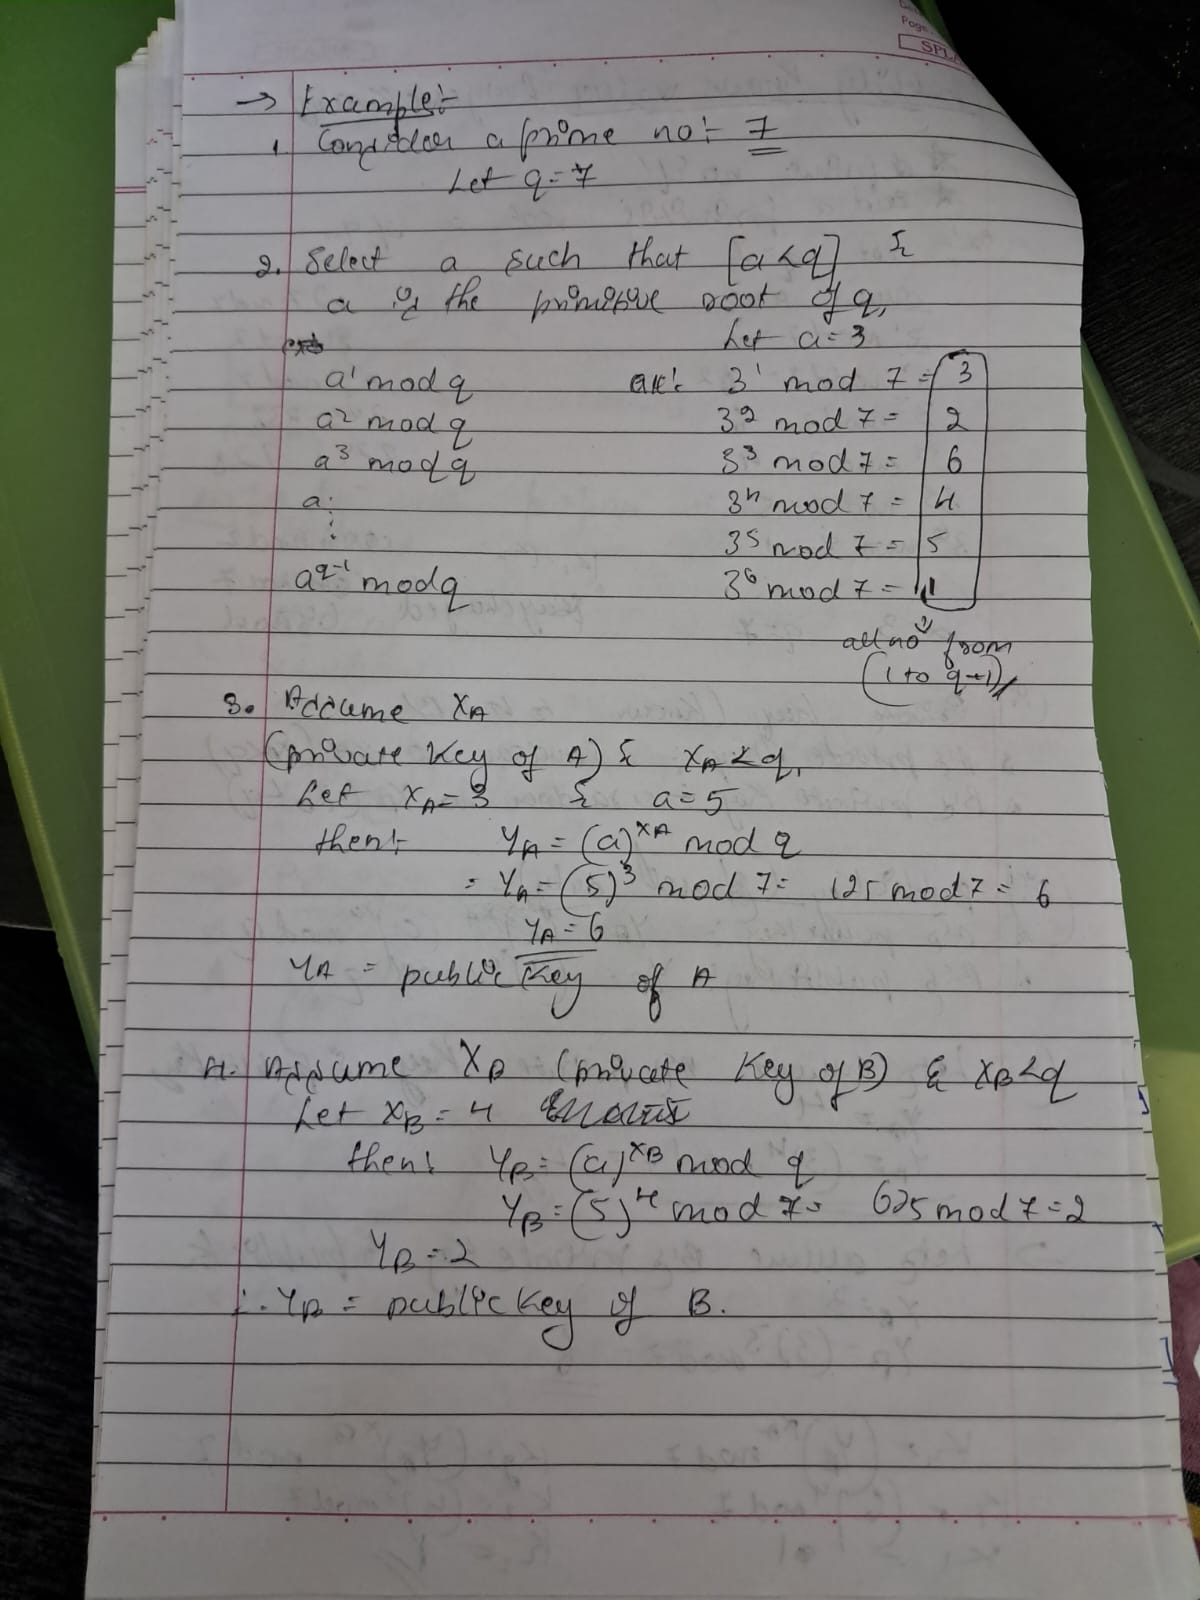 Page
SPL
→ Example:-
1. Consider a prime no:- 7
Let q=7
2. Select a such that [a<q] &
a is the primitive root of q,
Let a=3
a¹ mod q 3¹ mod 7 = 3
a² mod q 3² mod 7 = 2
a³ mod q 3³ mod 7 = 6
a: 3⁴ mod 7 = 4
⋮ 3⁵ mod 7 = 5
a^q-1 mod q 3⁶ mod 7 = 1
all no from
(1 to q-1)
3. Assume XA
(private Key of A) & XA<q,
Let XA=3 & a=5
then:- YA = (a)^XA mod q
= YA = (5)³ mod 7 = 125 mod 7 = 6
YA = 6
YA = public Key of A
4. Assume XB (private Key of B) & XB<q
Let XB = 4
then: YB = (a)^XB mod q
YB = (5)⁴ mod 7 = 625 mod 7 = 2
YB = 2
∴ YB = public Key of B.